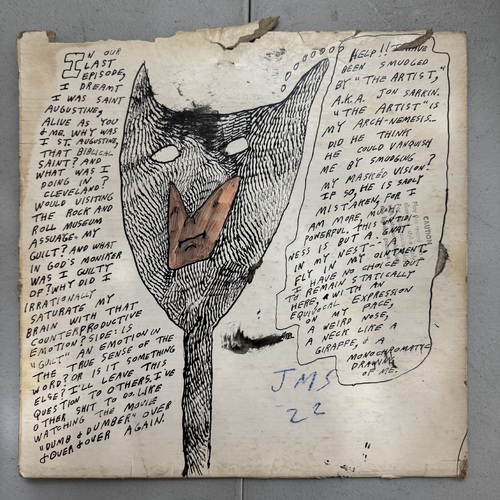 IN OUR
LAST
EPISODE,
I DREAMT
I WAS SAINT
AUGUSTINE,
ALIVE AS YOU
& ME. WHY WAS
I ST. AUGUSTINE,
THAT BIBLICAL
SAINT? AND
WHAT WAS I
DOING IN
CLEVELAND?
WOULD VISITING
THE ROCK AND
ROLL MUSEUM
ASSUAGE MY
GUILT? AND WHAT
IN GOD'S MONIKER
WAS I GUILTY
OF? WHY DID I
IRRATIONALLY
SATURATE MY
BRAIN WITH THAT
COUNTERPRODUCTIVE
EMOTION? SIDE: IS
"GUILT" AN EMOTION IN
THE TRUE SENSE OF THE
WORD? OR IS IT SOMETHING
ELSE? I'LL LEAVE THIS
QUESTION TO OTHERS. I'VE
OTHER SHIT TO DO. LIKE
WATCHING THE MOVIE
"DUMB & DUMBER" OVER
& OVER & OVER AGAIN.
HELP!! I HAVE
BEEN SMUDGED
BY "THE ARTIST,"
A.K.A. JON SARKIN.
"THE ARTIST" IS
MY ARCH-NEMESIS...
DID HE THINK
HE COULD VANQUISH
ME BY SMUDGING
MY MASKED VISION?
IF SO, HE IS SADLY
MISTAKEN, FOR I
AM MORE, MUCH
POWERFUL. THIS
NESS IS BUT A GNAT
IN MY NEST-A
FLY IN MY OINTMENT.
I HAVE NO CHOICE BUT
TO REMAIN STATICALLY
HERE, WITH AN
EQUIVOCAL EXPRESSION
ON MY FACE,
A WEIRD NOSE,
A NECK LIKE A
GIRAFFE, & A
MONOCHROMATIC
DRAWING
OF ME.
CAUTION
JMS
22